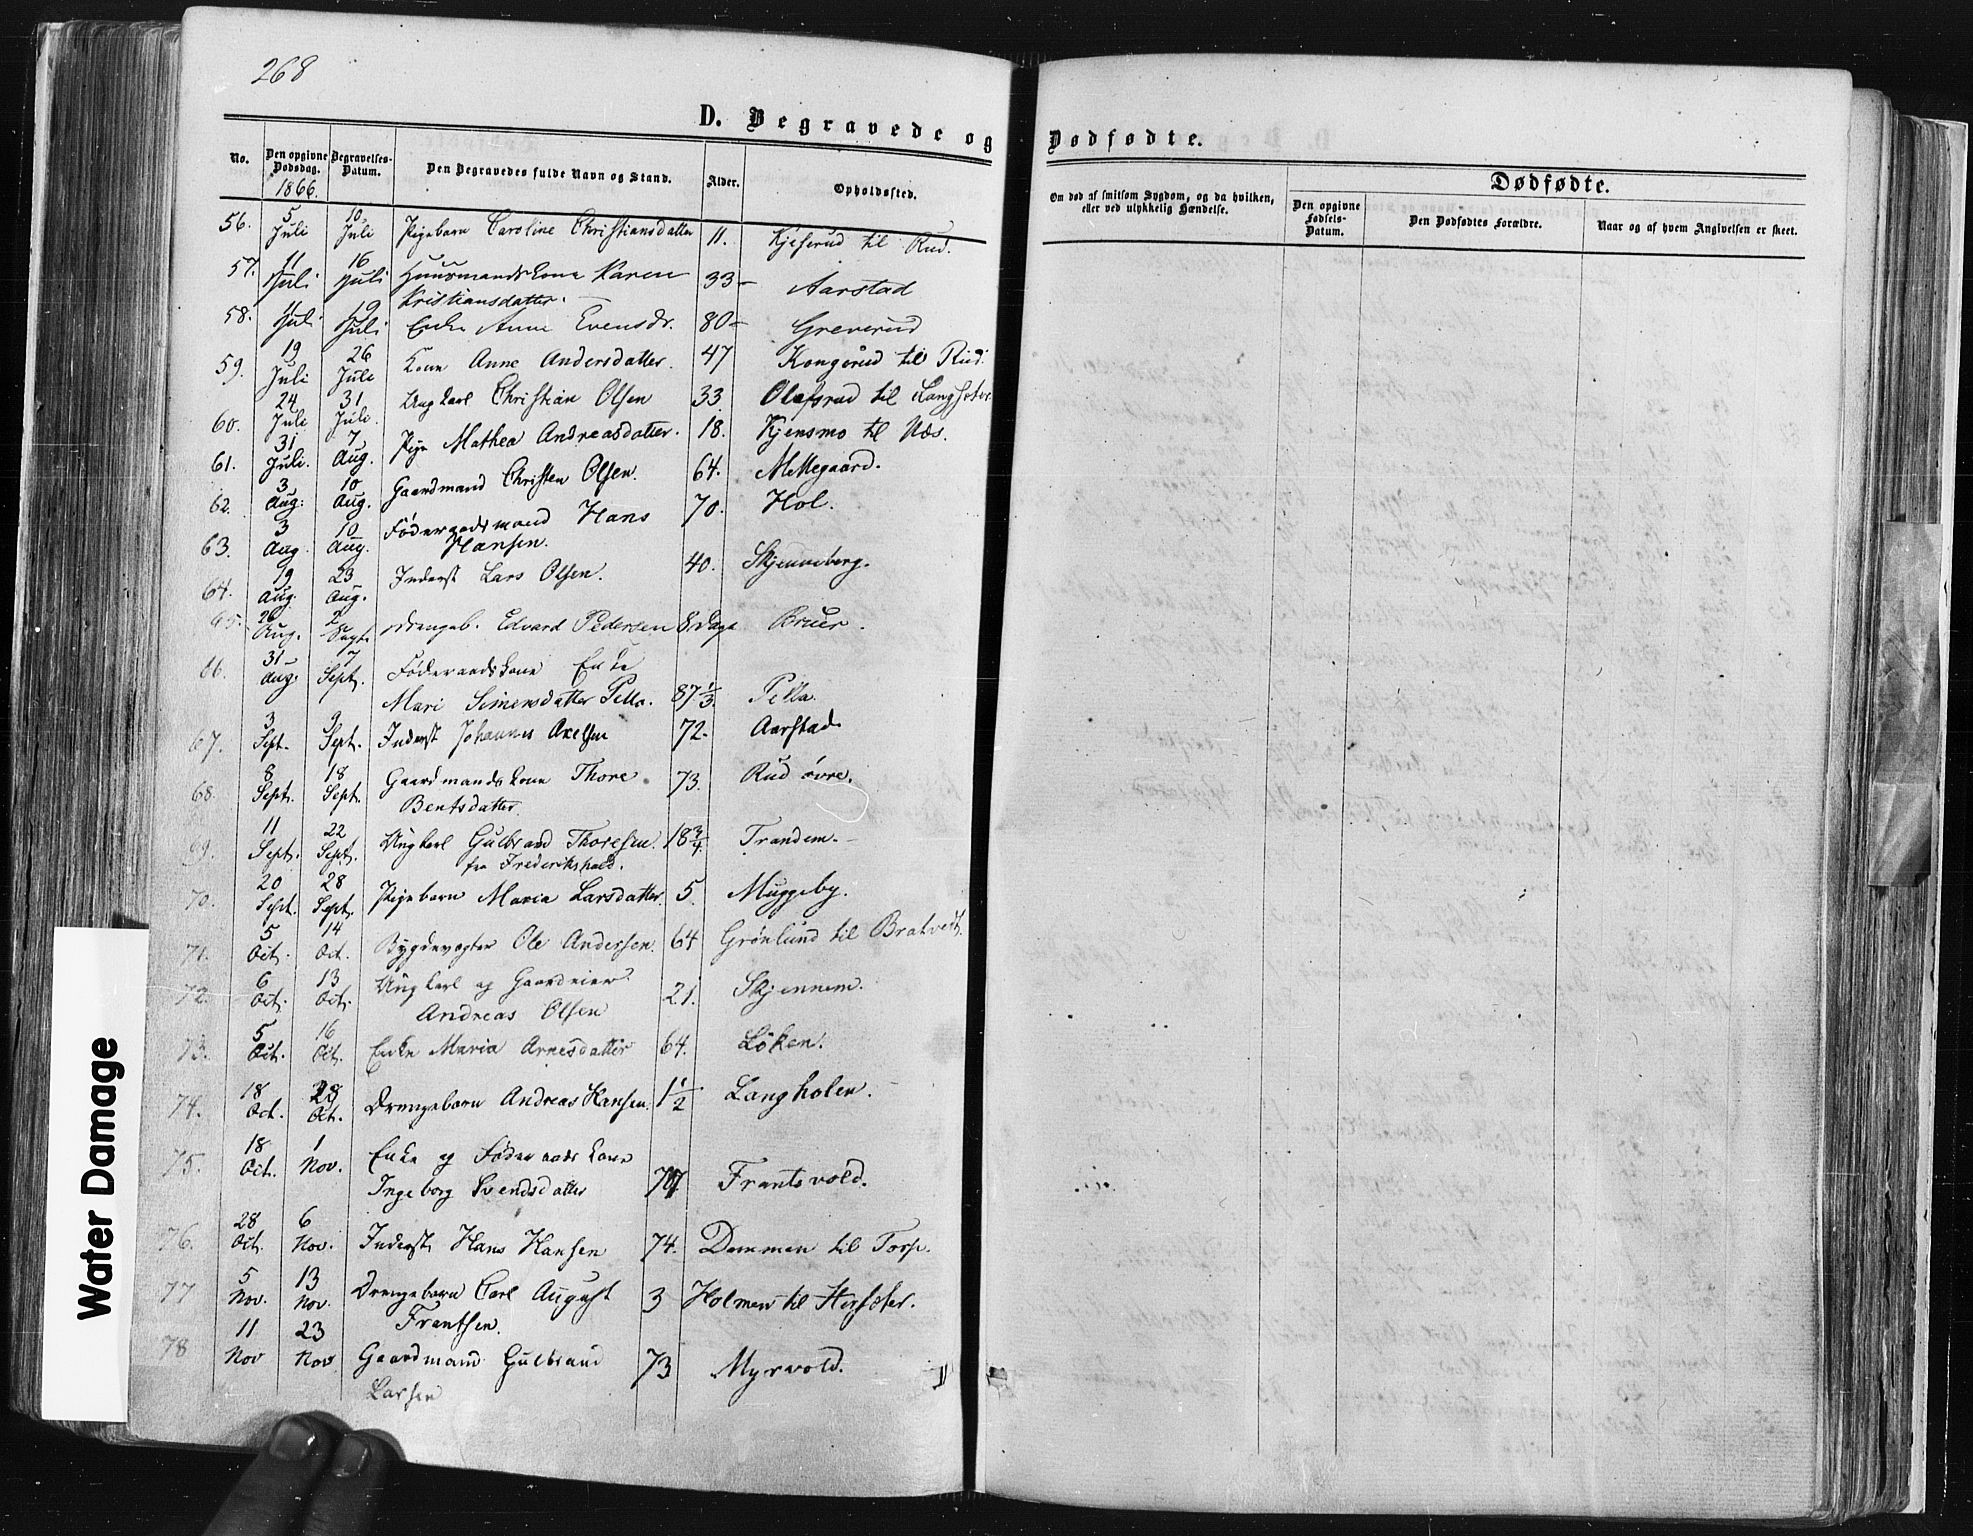 268
D. Begravede og Dødfødte.
No. Den opgivne Dødsdag. 1866. Begravelses-Datum. Den Begravedes fulde Navn og Stand. Alder. Opholdssted.
Om død af smitsom Sygdom, og da hvilken, eller ved ulykkelig Hændelse.
Dødfødte.
Den opgivne Fødsels-Datum. Den Dødfødtes Forældre. Naar og af hvem Angivelsen er skeet.
56. 5 Juli 10 Juli Pigebarn Caroline Christiansdatter 11. Kjeserud til Rud.
57. 11 Juli 16 Juli Huusmandskone Karen Kristiansdatter. 33 Aarstad
58. Juli 19 Juli Enke Anne Evensdr. 80 Greverud
59. 19 Juli 26 Juli Kone Anne Andersdatter. 47 Kongerud til Rud.
60. 24 Juli 31 Juli. Ungkarl Christian Olsen 33 Olafsrud til
61. 31 Juli. 7 Aug. Pige Mathea Andreasdatter. 18. Kjensmo til Næs.
62. 3 Aug: 10 Aug. Gaardmand Christen Olsen. 64. Mellegaard.
63. 3 Aug. 10 Aug. Føderaadsmand Hans Hansen. 70. Hol.
64. 19 Aug. 23 Aug. Inderst Lars Olsen. 40. Skjenneberg.
65. 26 Aug. 2 Sept. Drengeb. Edvard Pedersen 8 Dage Bruer.
66. 31 Aug. 7 Sept. Føderaadskone Enke
Mari Simensdatter Pella. 87 1/3. Pella.
67. 3 Sept. 9 Sept. Inderst Johannes Axelsen 72. Aarstad
68. 8 Sept. 18 Sept. Gaardmandskone Thore Bentsdatter. 73. Rud øvre.
69. 11 Sept. 22 Sept. Ungkarl Gulbrand Thoresen. fra Frederikshald. 18 3/4. Trandem.
70. 20 Sept. 28 Sept. Pigebarn Maria Larsdatter. 5. Muggeby.
71. 5 Oct. 14 Oct. Bygdevægter Ole Andersen. 64 Grønlund til Bratvedt.
72. 6 Oct. 13 Oct. Ungkarl og Gaardeier Andreas Olsen 21. Skjennem.
73. 5 Oct. 16 Oct. Enke Maria Arnesdatter 64. Løken.
74. 18 Oct. 28 Oct. Drengebarn Andreas Hansen. 1 1/2 Langholen.
75. 18 Oct. 1 Nov. Enke og Føderaadskone
Ingeborg Svendsdatter 77 Frantsvold.
76. 28 Oct. 6 Nov. Inderst Hans Hansen 74. Dammen til Torp.
77 5 Nov. 13 Nov. Drengebarn Carl August Frantsen. 3 Holmen til Hersæter.
78 11 Nov 23 Nov Gaardmand Gulbrand Larsen 73 Myrvold.
Water Damage